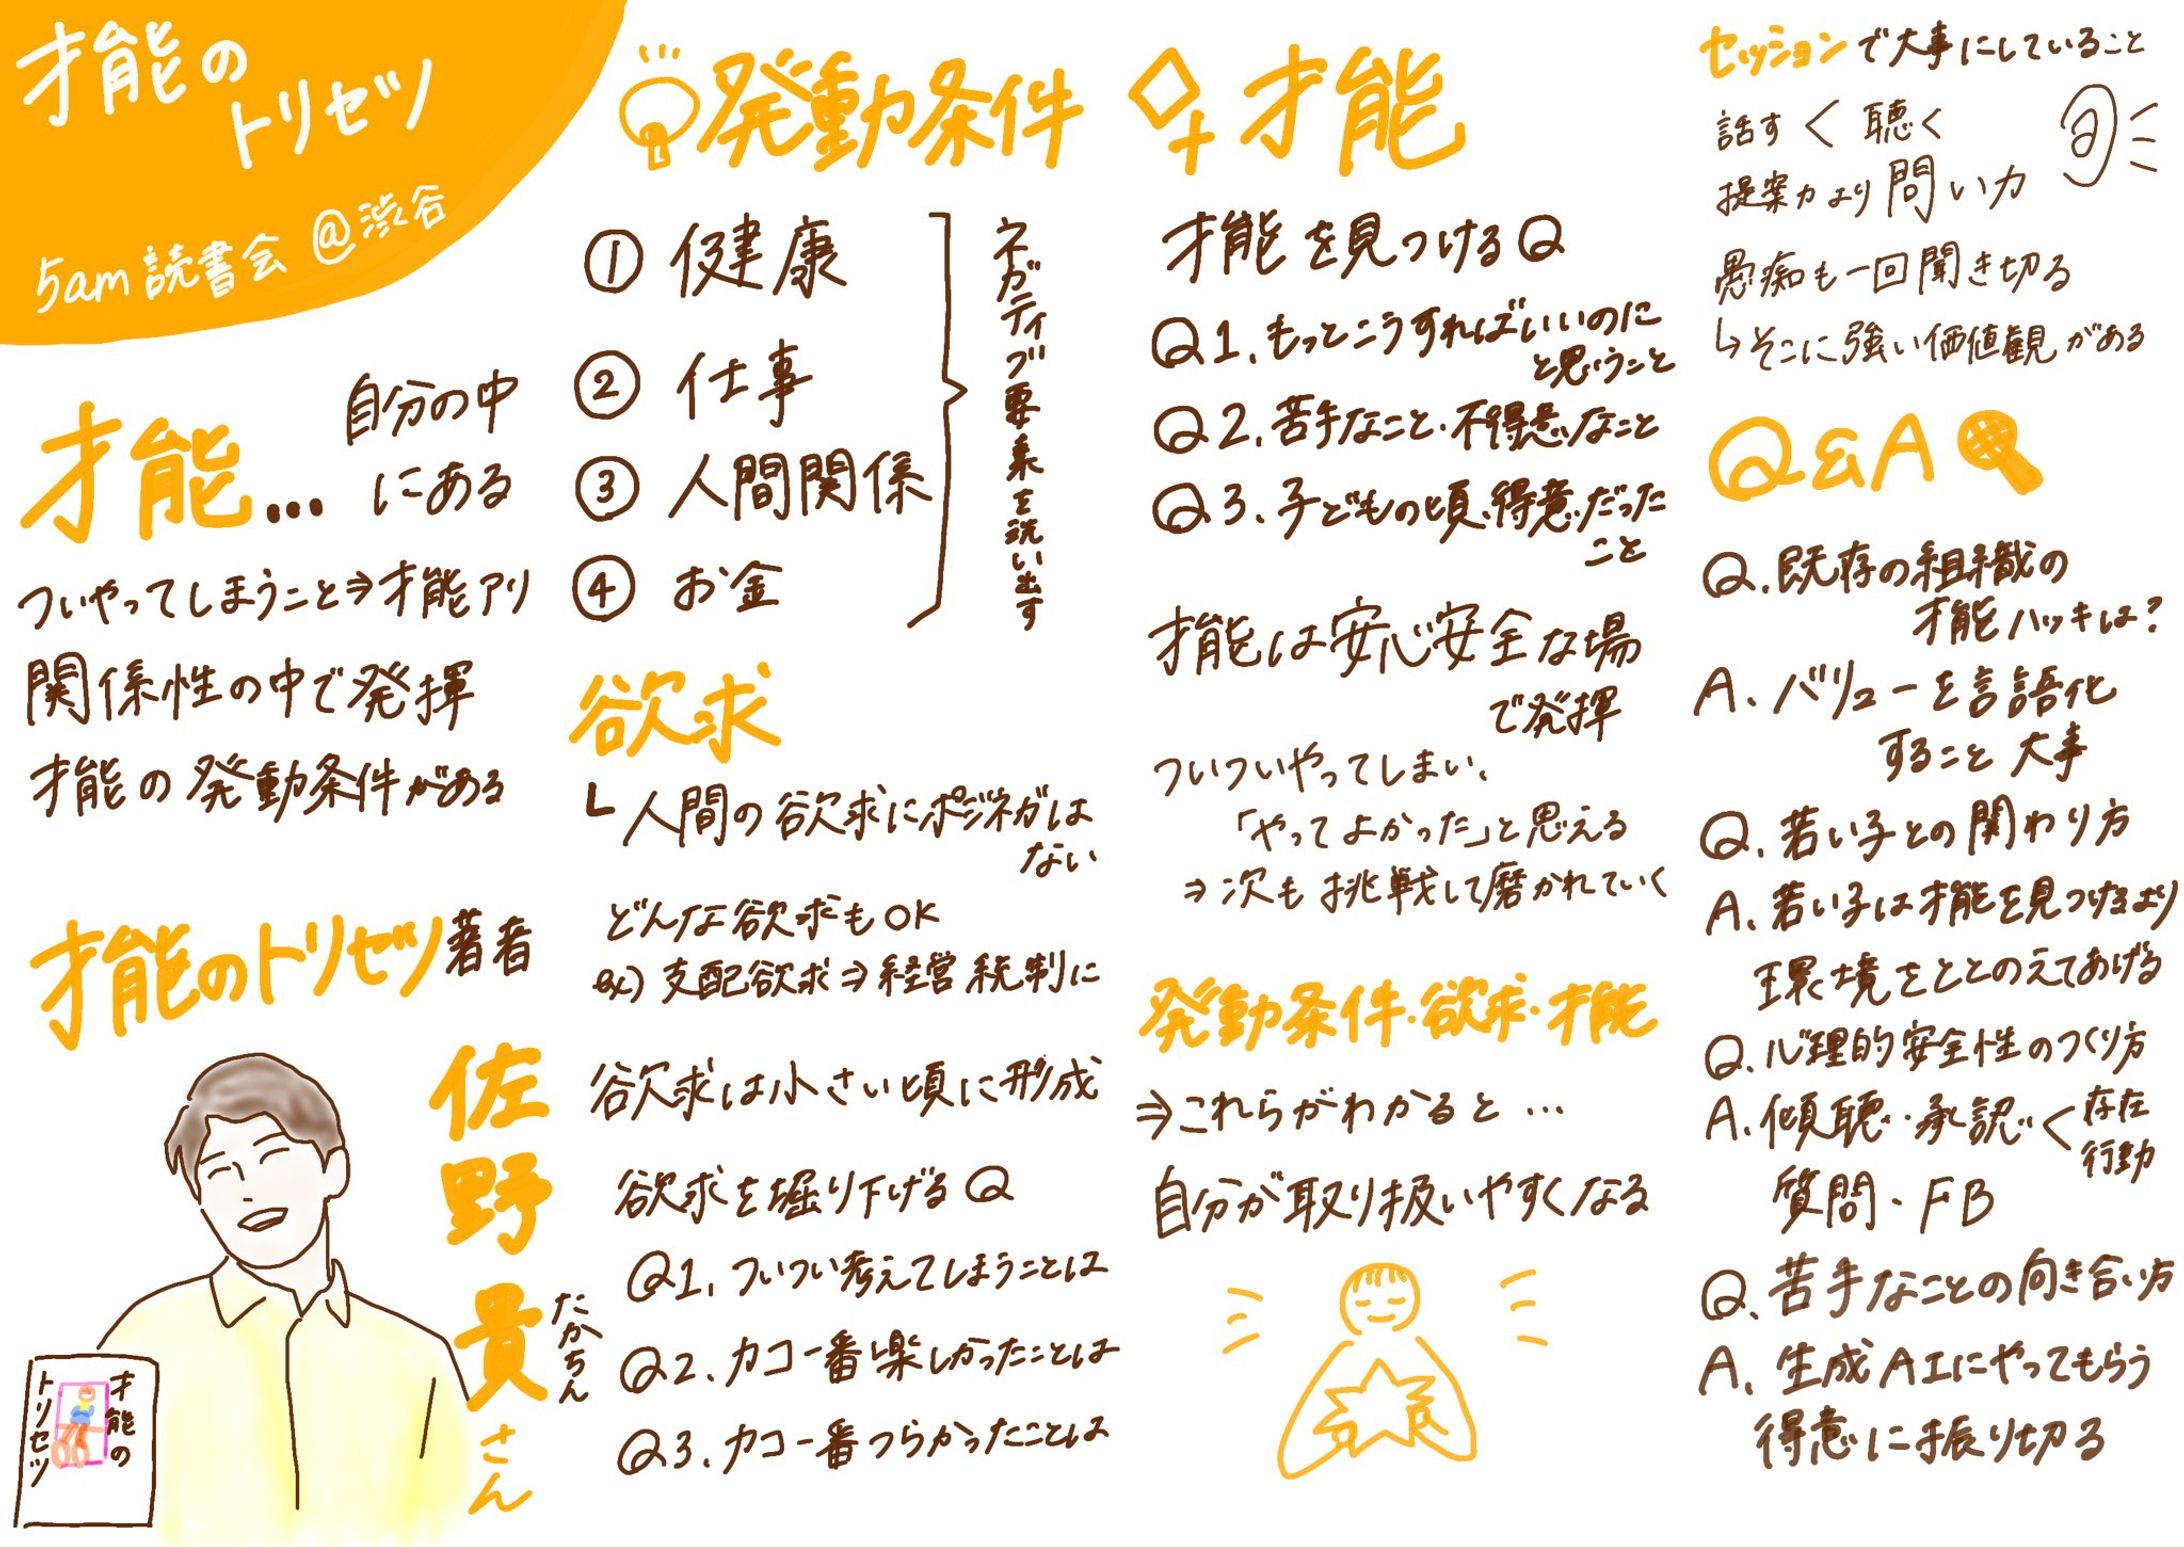 才能の
トリセツ
5am 読書会 @渋谷
才能… 自分の中
にある
ついやってしまうこと⇒才能アリ
関係性の中で発揮
才能の発動条件がある
才能のトリセツ著者
佐野貴さん
たかちん
才能の
トリセツ
発動条件
① 健康
② 仕事
③ 人間関係
④ お金
ネガティブ要素を洗い出す
欲求
人間の欲求にポジネガは
ない
どんな欲求もOK
ex) 支配欲求⇒経営 統制に
欲求は小さい頃に形成
欲求を堀り下げるQ
Q1. ついつい考えてしまうことは
Q2. カコ一番楽しかったことは
Q3. カコ一番つらかったことは
才能
才能を見つけるQ
Q1. もっとこうすればいいのに
と思うこと
Q2. 苦手なこと・不得意なこと
Q3. 子どもの頃、得意だった
こと
才能は安心安全な場
で発揮
ついついやってしまい、
「やってよかった」と思える
⇒次も挑戦して磨かれていく
発動条件・欲求・才能
⇒これらがわかると…
自分が取り扱いやすくなる
セッションで大事にしていること
話す < 聴く
提案力より 問い力
愚痴も一回聞き切る
↳そこに強い価値観がある
Q&A
Q. 既存の組織の
才能ハッキは？
A. バリューを言語化
すること 大事
Q. 若い子との関わり方
A. 若い子は才能を見つけるより
環境をととのえてあげる
Q. 心理的安全性のつくり方
A. 傾聴・承認 < 存在
行動
質問・FB
Q. 苦手なことの向き合い方
A. 生成AIにやってもらう
得意に振り切る